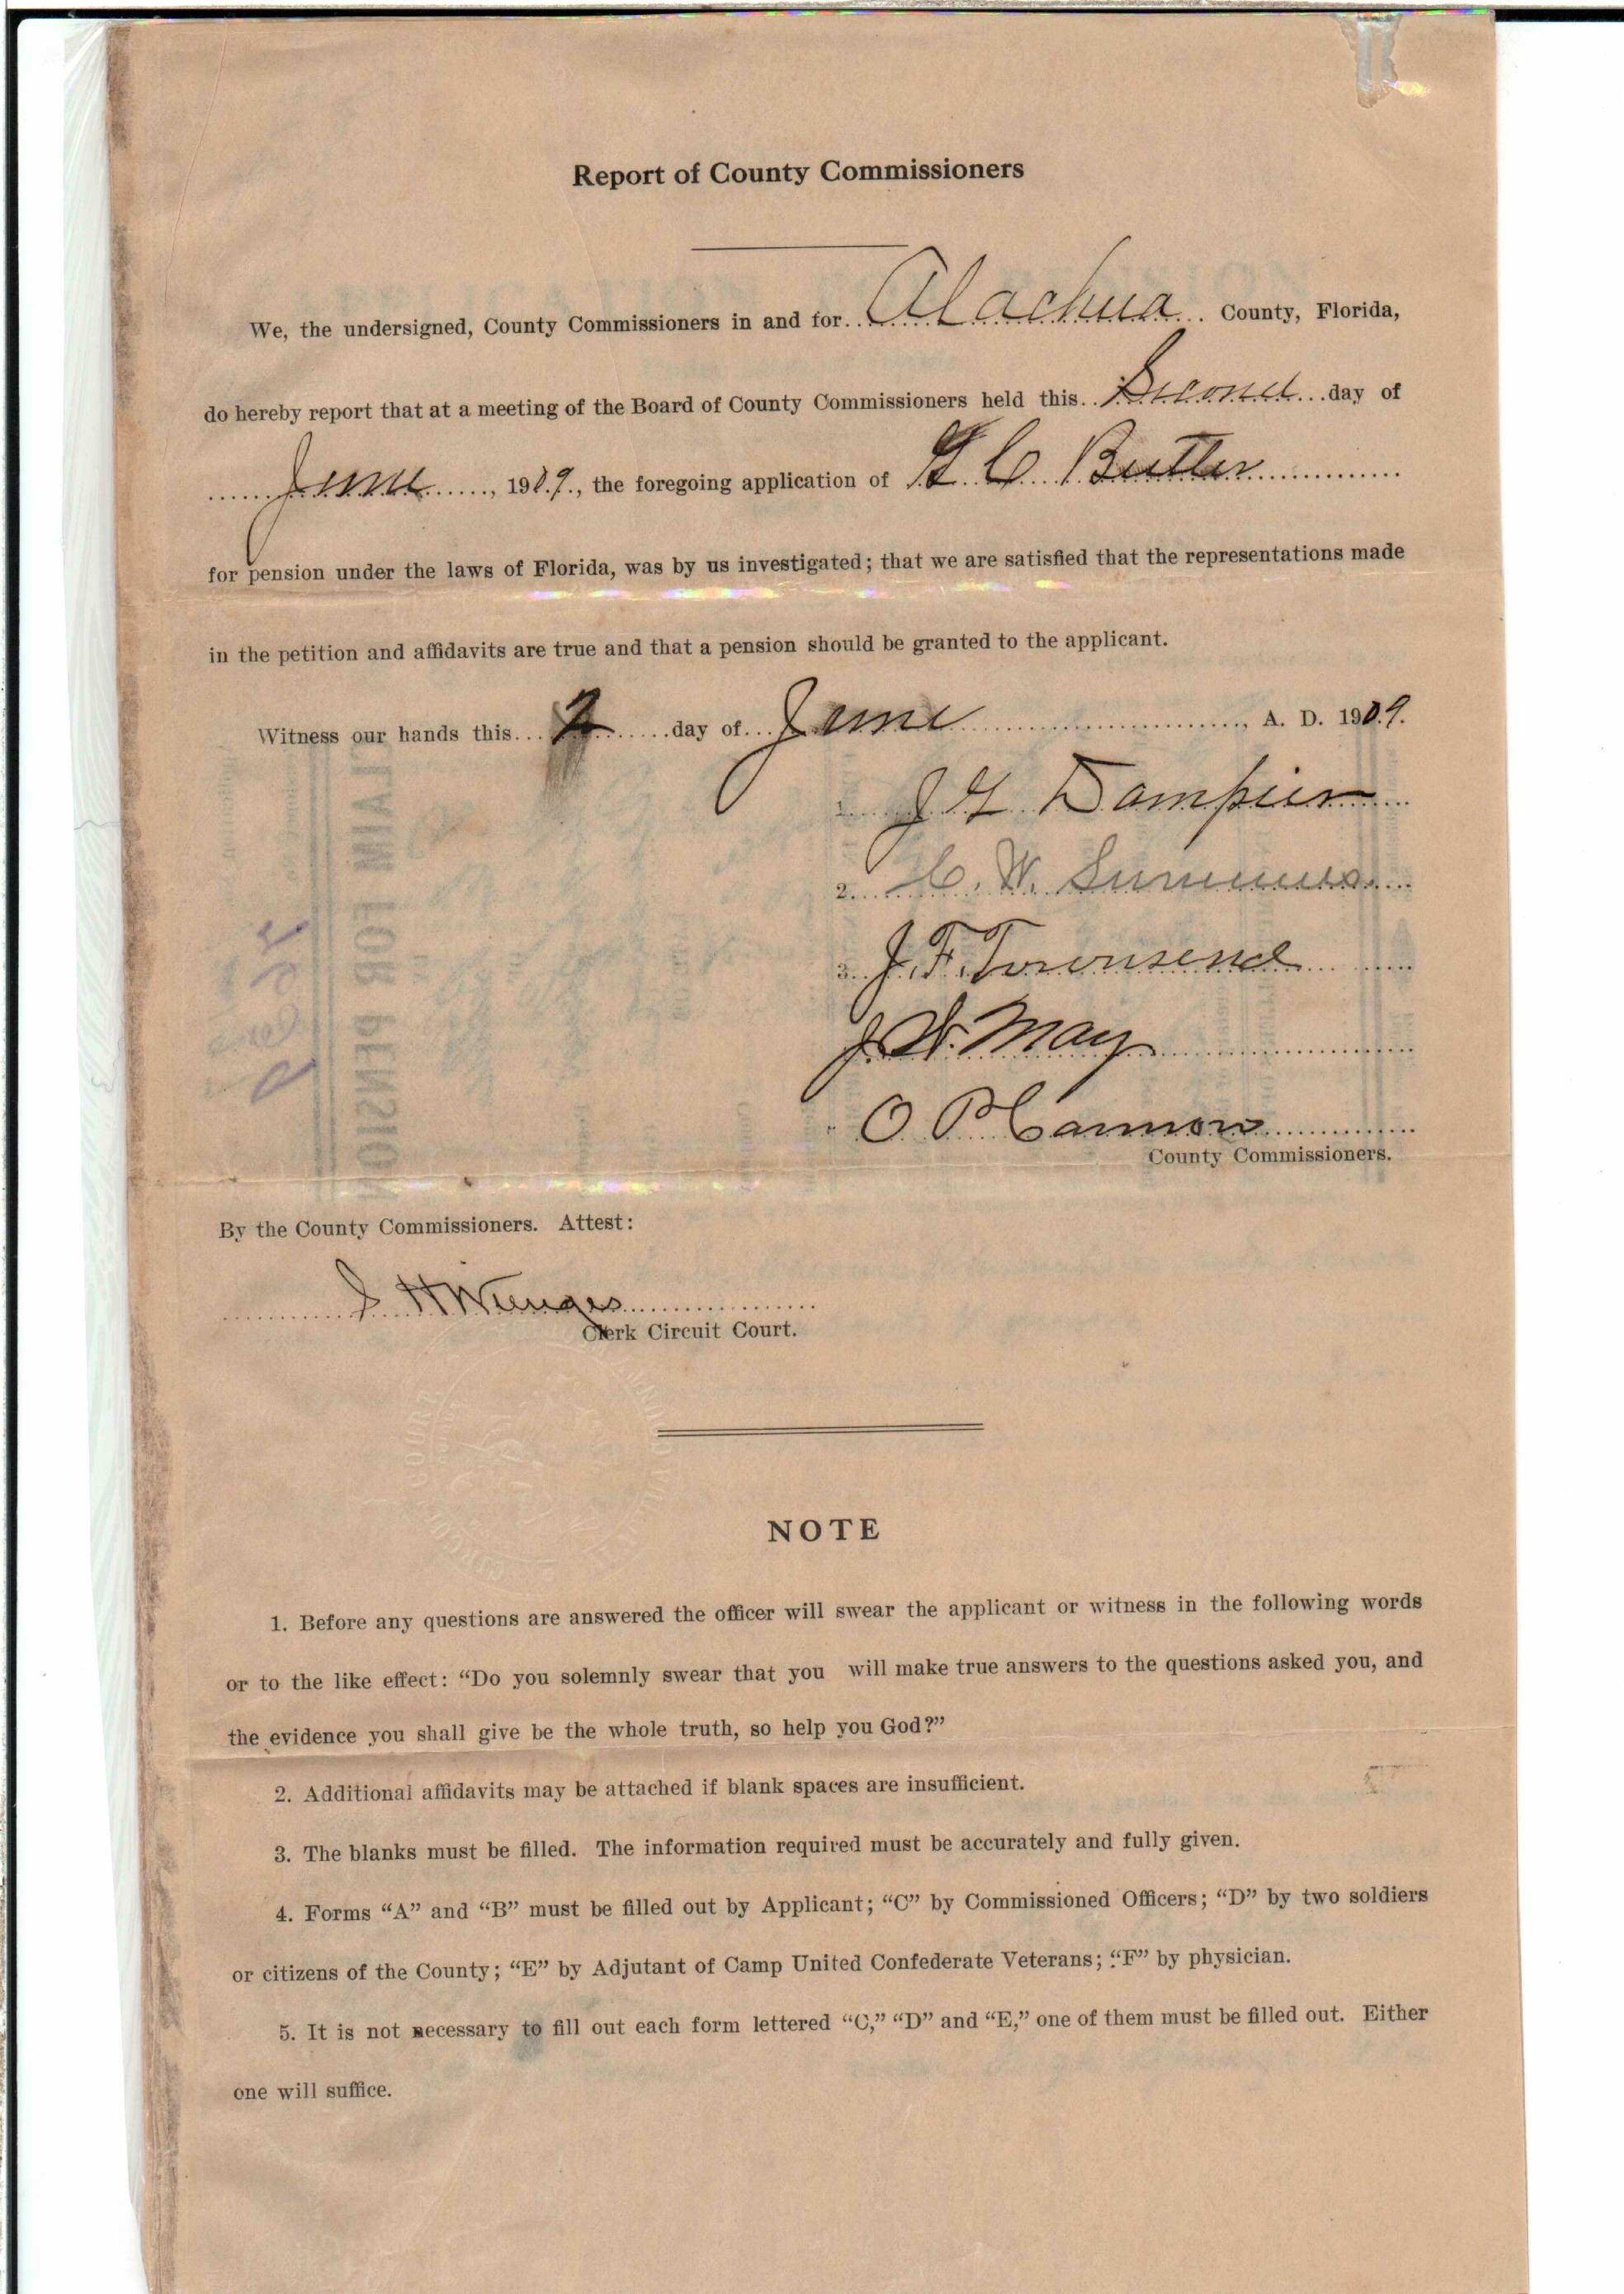 Report of County Commissioners
We, the undersigned, County Commissioners in and for Alachua County, Florida,
do hereby report that at a meeting of the Board of County Commissioners held this Second day of
June, 1909, the foregoing application of G C Butler
for pension under the laws of Florida, was by us investigated; that we are satisfied that the representations made
in the petition and affidavits are true and that a pension should be granted to the applicant.
Witness our hands this 2 day of June, A. D. 1909.
J G Dampier
2. C. W. Summers
3. J. F. Townsend
J. W. May
O P Cannon
County Commissioners.
By the County Commissioners. Attest:
S H Wienges
Clerk Circuit Court.
NOTE
1. Before any questions are answered the officer will swear the applicant or witness in the following words
or to the like effect: “Do you solemnly swear that you will make true answers to the questions asked you, and
the evidence you shall give be the whole truth, so help you God?”
2. Additional affidavits may be attached if blank spaces are insufficient.
3. The blanks must be filled. The information required must be accurately and fully given.
4. Forms “A” and “B” must be filled out by Applicant; “C” by Commissioned Officers; “D” by two soldiers
or citizens of the County; “E” by Adjutant of Camp United Confederate Veterans; “F” by physician.
5. It is not necessary to fill out each form lettered “C,” “D” and “E,” one of them must be filled out. Either
one will suffice.